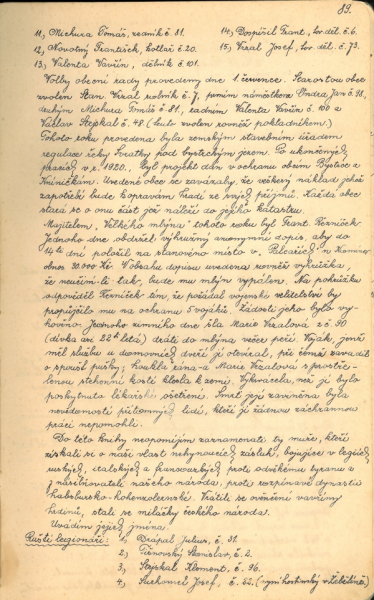 89.
11, Michura Tomáš, rolník č. 81. 14, Dospíšil Frant., tov. děl. č. 6.
12, Novotný František, kolář č. 20. 15, Vrzal Josef, tov. děl. č. 73.
13, Valenta Vavřin, dělník č. 101.
Volby obecní rady provedeny dne 1 července. Starostou obce
zvolen Stan. Vrzal rolník č. 7, prvním náměstkem Ondra Jan č. 98,
druhým Michura Tomáš č. 81, radním Valenta Vavřin č. 101 a
Václav Stejskal č. 48. (tento zvolen rovněž pokladníkem.)
Tohoto roku provedena byla zemským stavebním úřadem
regulace řeky Svratky pod bystrckým jezem. Po ukončených
pracích v r. 1920. Byl projekt dán v ochranu obcím Bystrce a
Kníničkám. Uvedené obce se zavázaly, že veškerý náklad jehož
zapotřebí bude k opravám hradí ze svých příjmů. Každá obec
stará se o onu část jež náleží do jejího katastru.
Majitelem „Velkého mlýna" tohoto roku byl Frant. Řezníček.
Jednoho dne obdržel výhružný anonymní dopis, aby do
14ti dní položil na stanovené místo v
obnos 30.000 Kč. V obsahu dopisu uvedena rovněž výhrůžka,
že neučiní-li tak, bude mu mlýn vypálen. Na pohrůžku
odpověděl Řezníček tím, že požádal vojenské velitelství by
propůjčilo mu na ochranu 5 vojáků. Žádosti jeho bylo vy-
hověno. Jednoho zimního dne šla Marie Vrzalová z č. 90
(dívka asi 22ti letá) dráti do mlýna večer peří. Voják, jenž
měl službu a domovních dveří jí otevíral, při čemž zavadil
o spoušť pušky; houkla rána a Marie Vrzalová s prostře-
lenou stehenní kostí klesla k zemi. Vykrvácela, než jí bylo
poskytnuto lékařské ošetření. Smrt její zaviněna byla
nevědomostí přítomných lidí, kteří jí žádnou záchrannou
prací nepomohli.
Do této knihy neopomíjím zaznamenati ty muže, kteří
získali si o naši vlast nehynoucích zásluh, bojujíce v legiích
ruských, italských a francouzských proti odvěkému tyranu a
znásilňovateli našeho národa, proti rozpínavé dynastii
habsbursko-hohenzolernské. Vrátili se ověnčeni vavříny
hrdinů, stali se miláčky českého národa.
Uvádím jejich jména.
Ruští legionáři: 1, Drápal Julius, č. 31.
2, Tišnovský Stanislav, č. 2.
3, Stejskal Kliment, č. 96.
4, Suchomel Josef, č. 52. (nyní hostinský v Žebětíně)